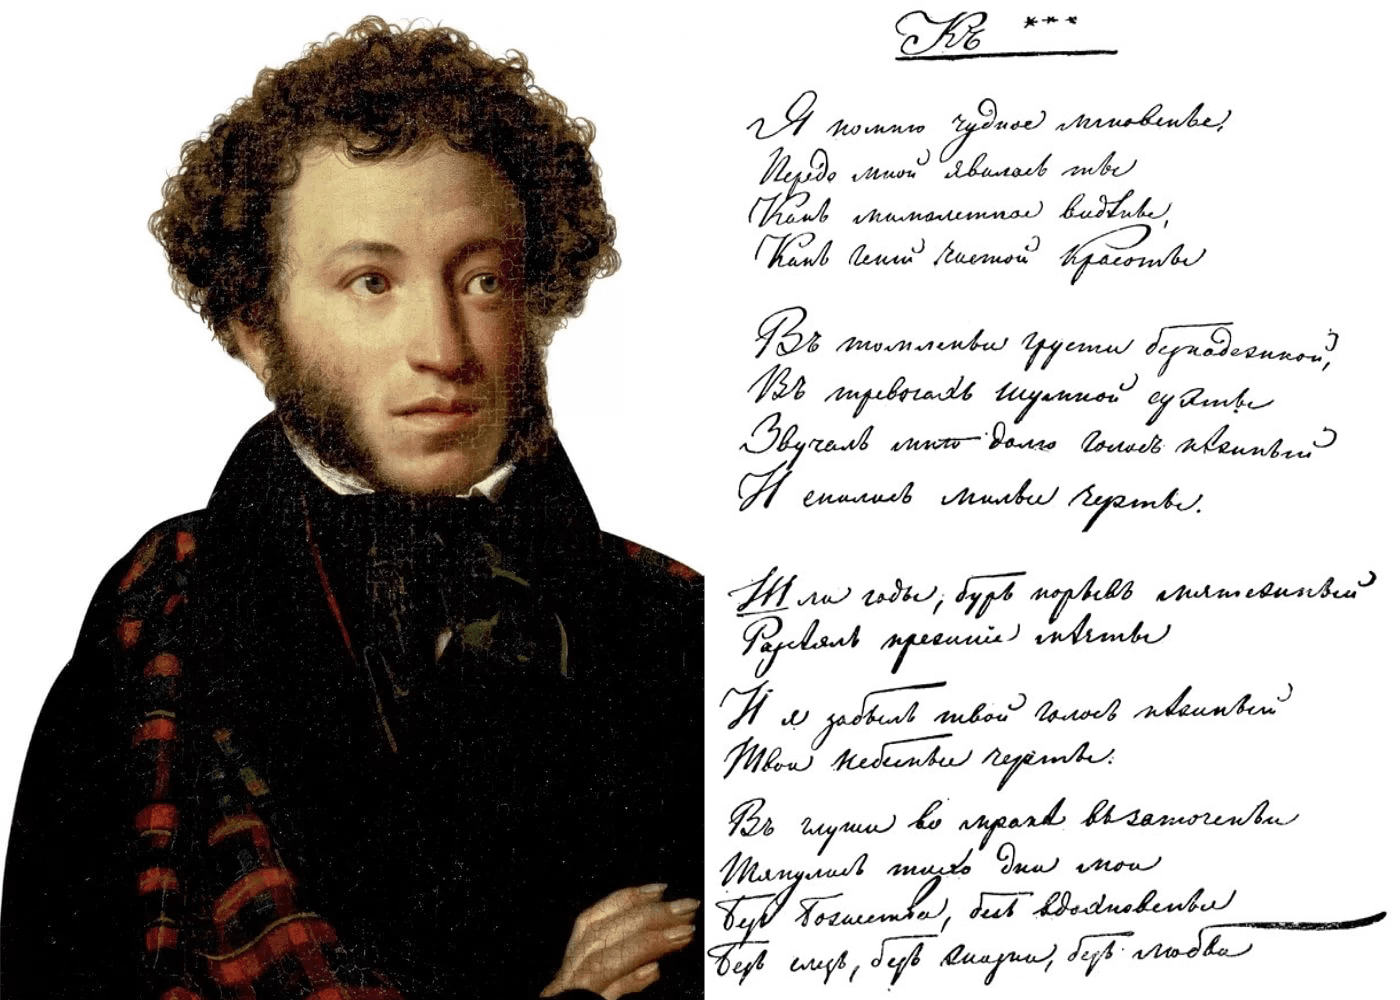 Къ ***
Я помню чудное мгновенье,
Передо мной явилась ты
Какъ мимолетное видѣнье,
Какъ геній чистой красоты
Въ томленьи грусти безнадежной,
Въ тревогахъ шумной суяты
Звучалъ мнѣ долго голосъ нѣжный
И снились милые черты.
Шли годы, бурь порывъ мятежный
Разсѣялъ прежніе мѣчты
И я забылъ твой голосъ нѣжный
Твои небесные черты.
Въ глуши во мракѣ въ заточеньи
Тянулись тихо дни мои
Безъ божества, безъ вдохновенья
Безъ слезъ, безъ жизни, безъ любви